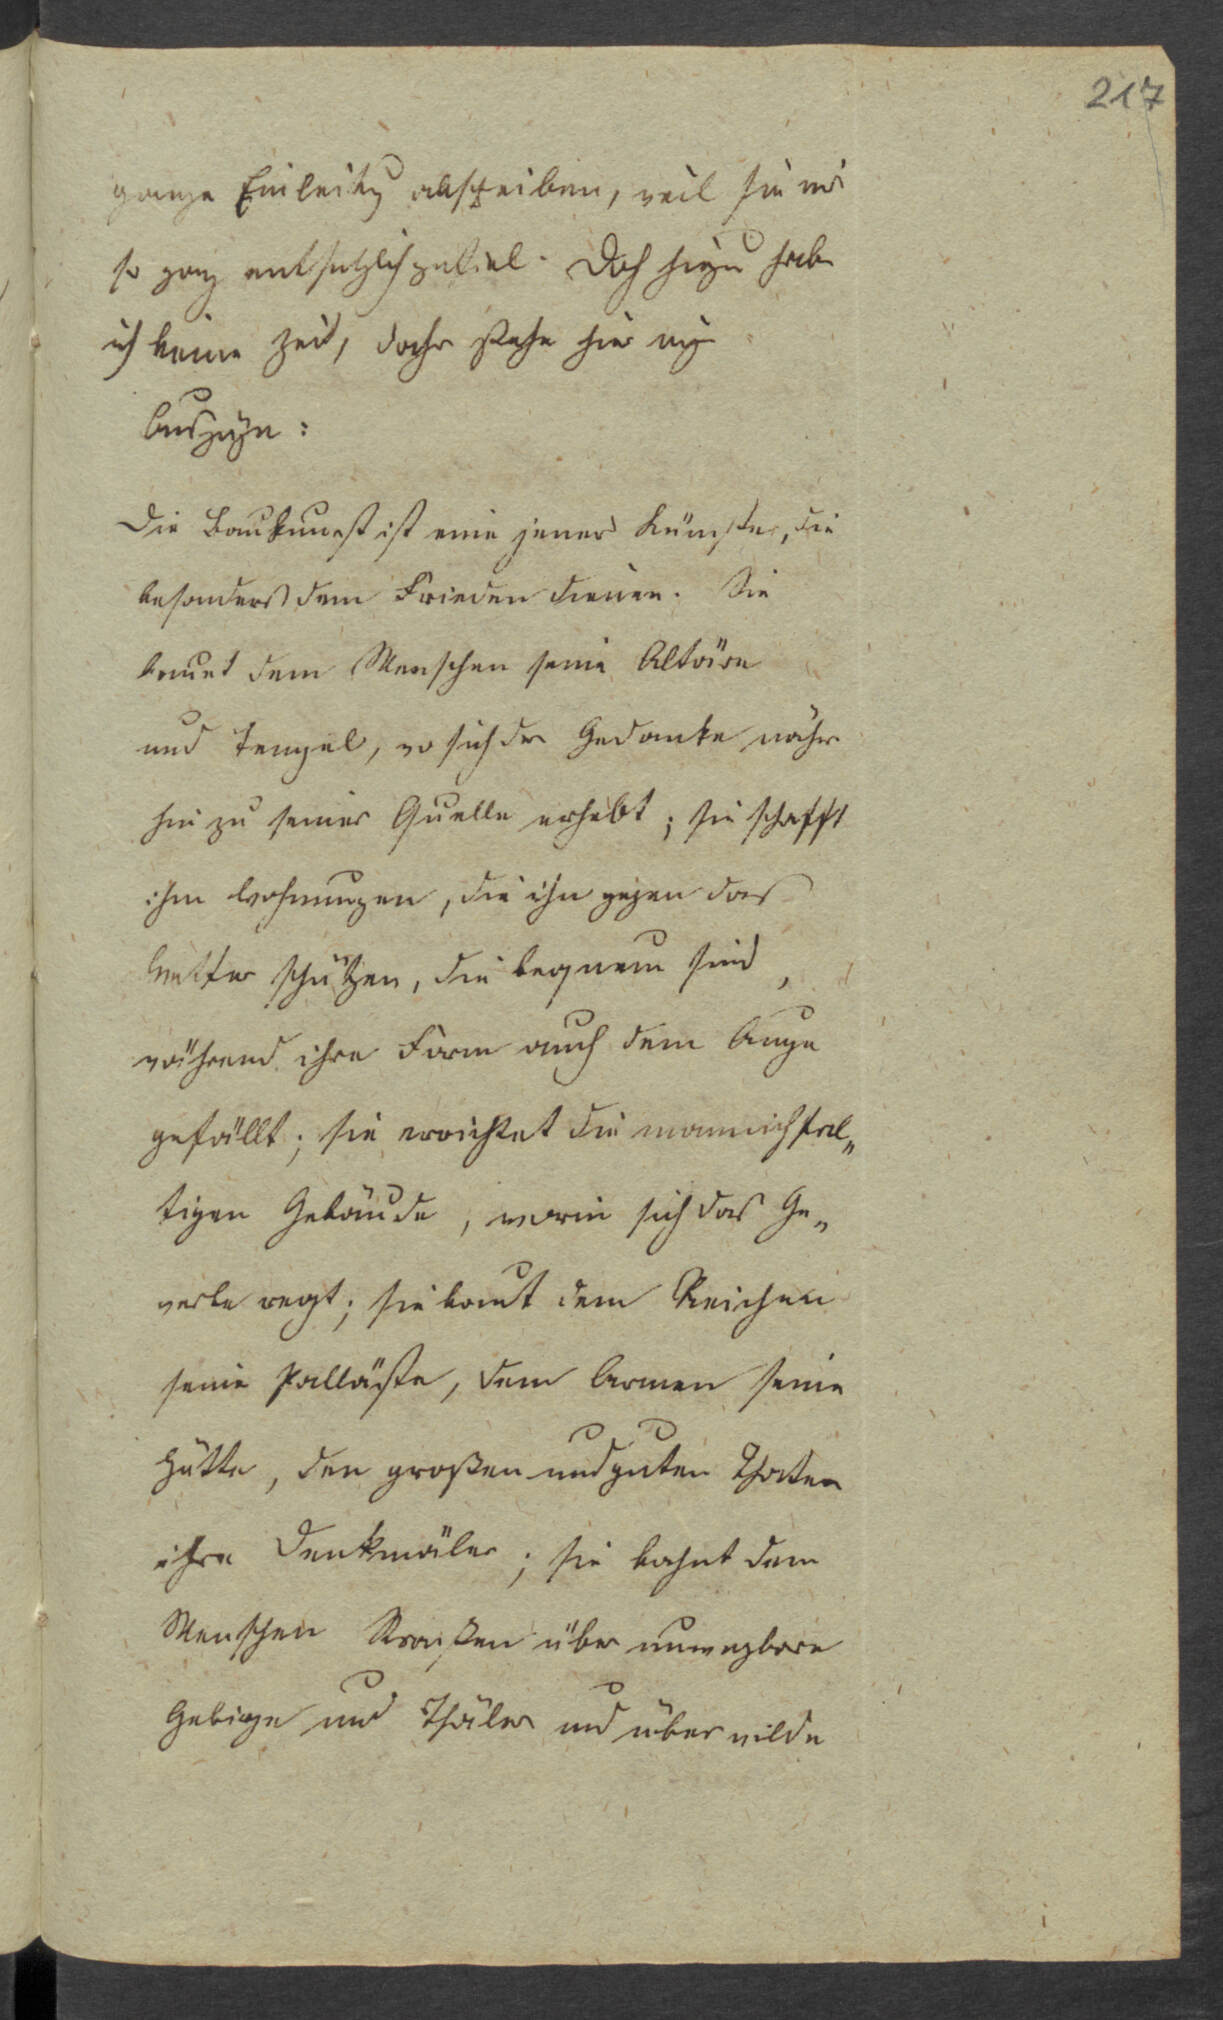 217
ganze Einleitg abschreiben, weil sie mir
so ganz entsetzlich gefiel. Doch hiezu habe
ich keine Zeit, daher stehe hier ein
Auszug:
Die Baukunst ist eine jener Künste, die
besonders dem Frieden dienen. Sie
bauet dem Menschen seine Altäre
und Tempel, wo sich der Gedanke näher
hin zu seiner Quelle erhebt; sie schafft
ihm Wohnungen, die ihn gegen das
Wetter schützen, die bequem sind,
während ihre Form auch dem Auge
gefällt; sie errichtet die mannichfal„
tigen Gebäude, worin sich das Ge„
werbe regt; sie baut dem Reichen
seine Palläste, dem Armen seine
Hütte, den großen und guten Thaten
ihre Denkmäler; sie bahnt dem
Menschen Straßen über unwegbare
Gebirge und Thäler und über wilde